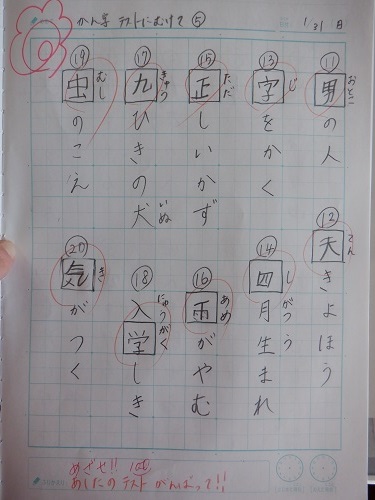 かん字 テストにむけて ⑤
1/31 日
⑪ 男の人 おとこ
⑫ 天きよほう てん
⑬ 字をかく じ
⑭ 四月生まれ しがつう
⑮ 正しいかず ただ
⑯ 雨がやむ あめ
⑰ 九ひきの犬 きゅう いぬ
⑱ 入学しき にゅうがく
⑲ 虫のこえ むし
⑳ 気がつく き
めざせ!! 100
あしたのテスト がんばって!!